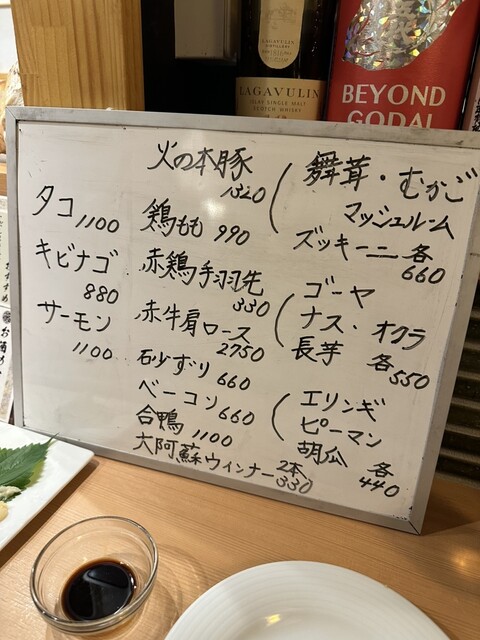 LAGAVULIN
ISLAY SINGLE MALT
SCOTCH WHISKY
BEYOND
GODAI
タコ
1100
キビナゴ
880
サーモン
1100
火の本豚
1320
鶏もも 990
赤鶏手羽先
330
赤牛肩ロース
2750
砂ずり 660
ベーコン 660
合鴨 1100
大阿蘇ウィンナー 2本 330
舞茸・むかご
マッシュルーム
ズッキーニ 各
660
ゴーヤ
ナス・オクラ
長芋 各 550
エリンギ
ピーマン
胡瓜 各
440